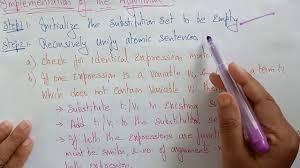 Implementation of the Algorithm
Step1: Initialize the substitution set to be Empty
Step2: Recursively unify atomic sentences
a) check for identical expression
b) If one expression is a variable vi a term ti
which does not contain variable vi
→ substitute ti/vi in existing
→ Add ti/vi to the substitution
→ If both the expressions are functi
must be similar, & no. of arguments
both expression.